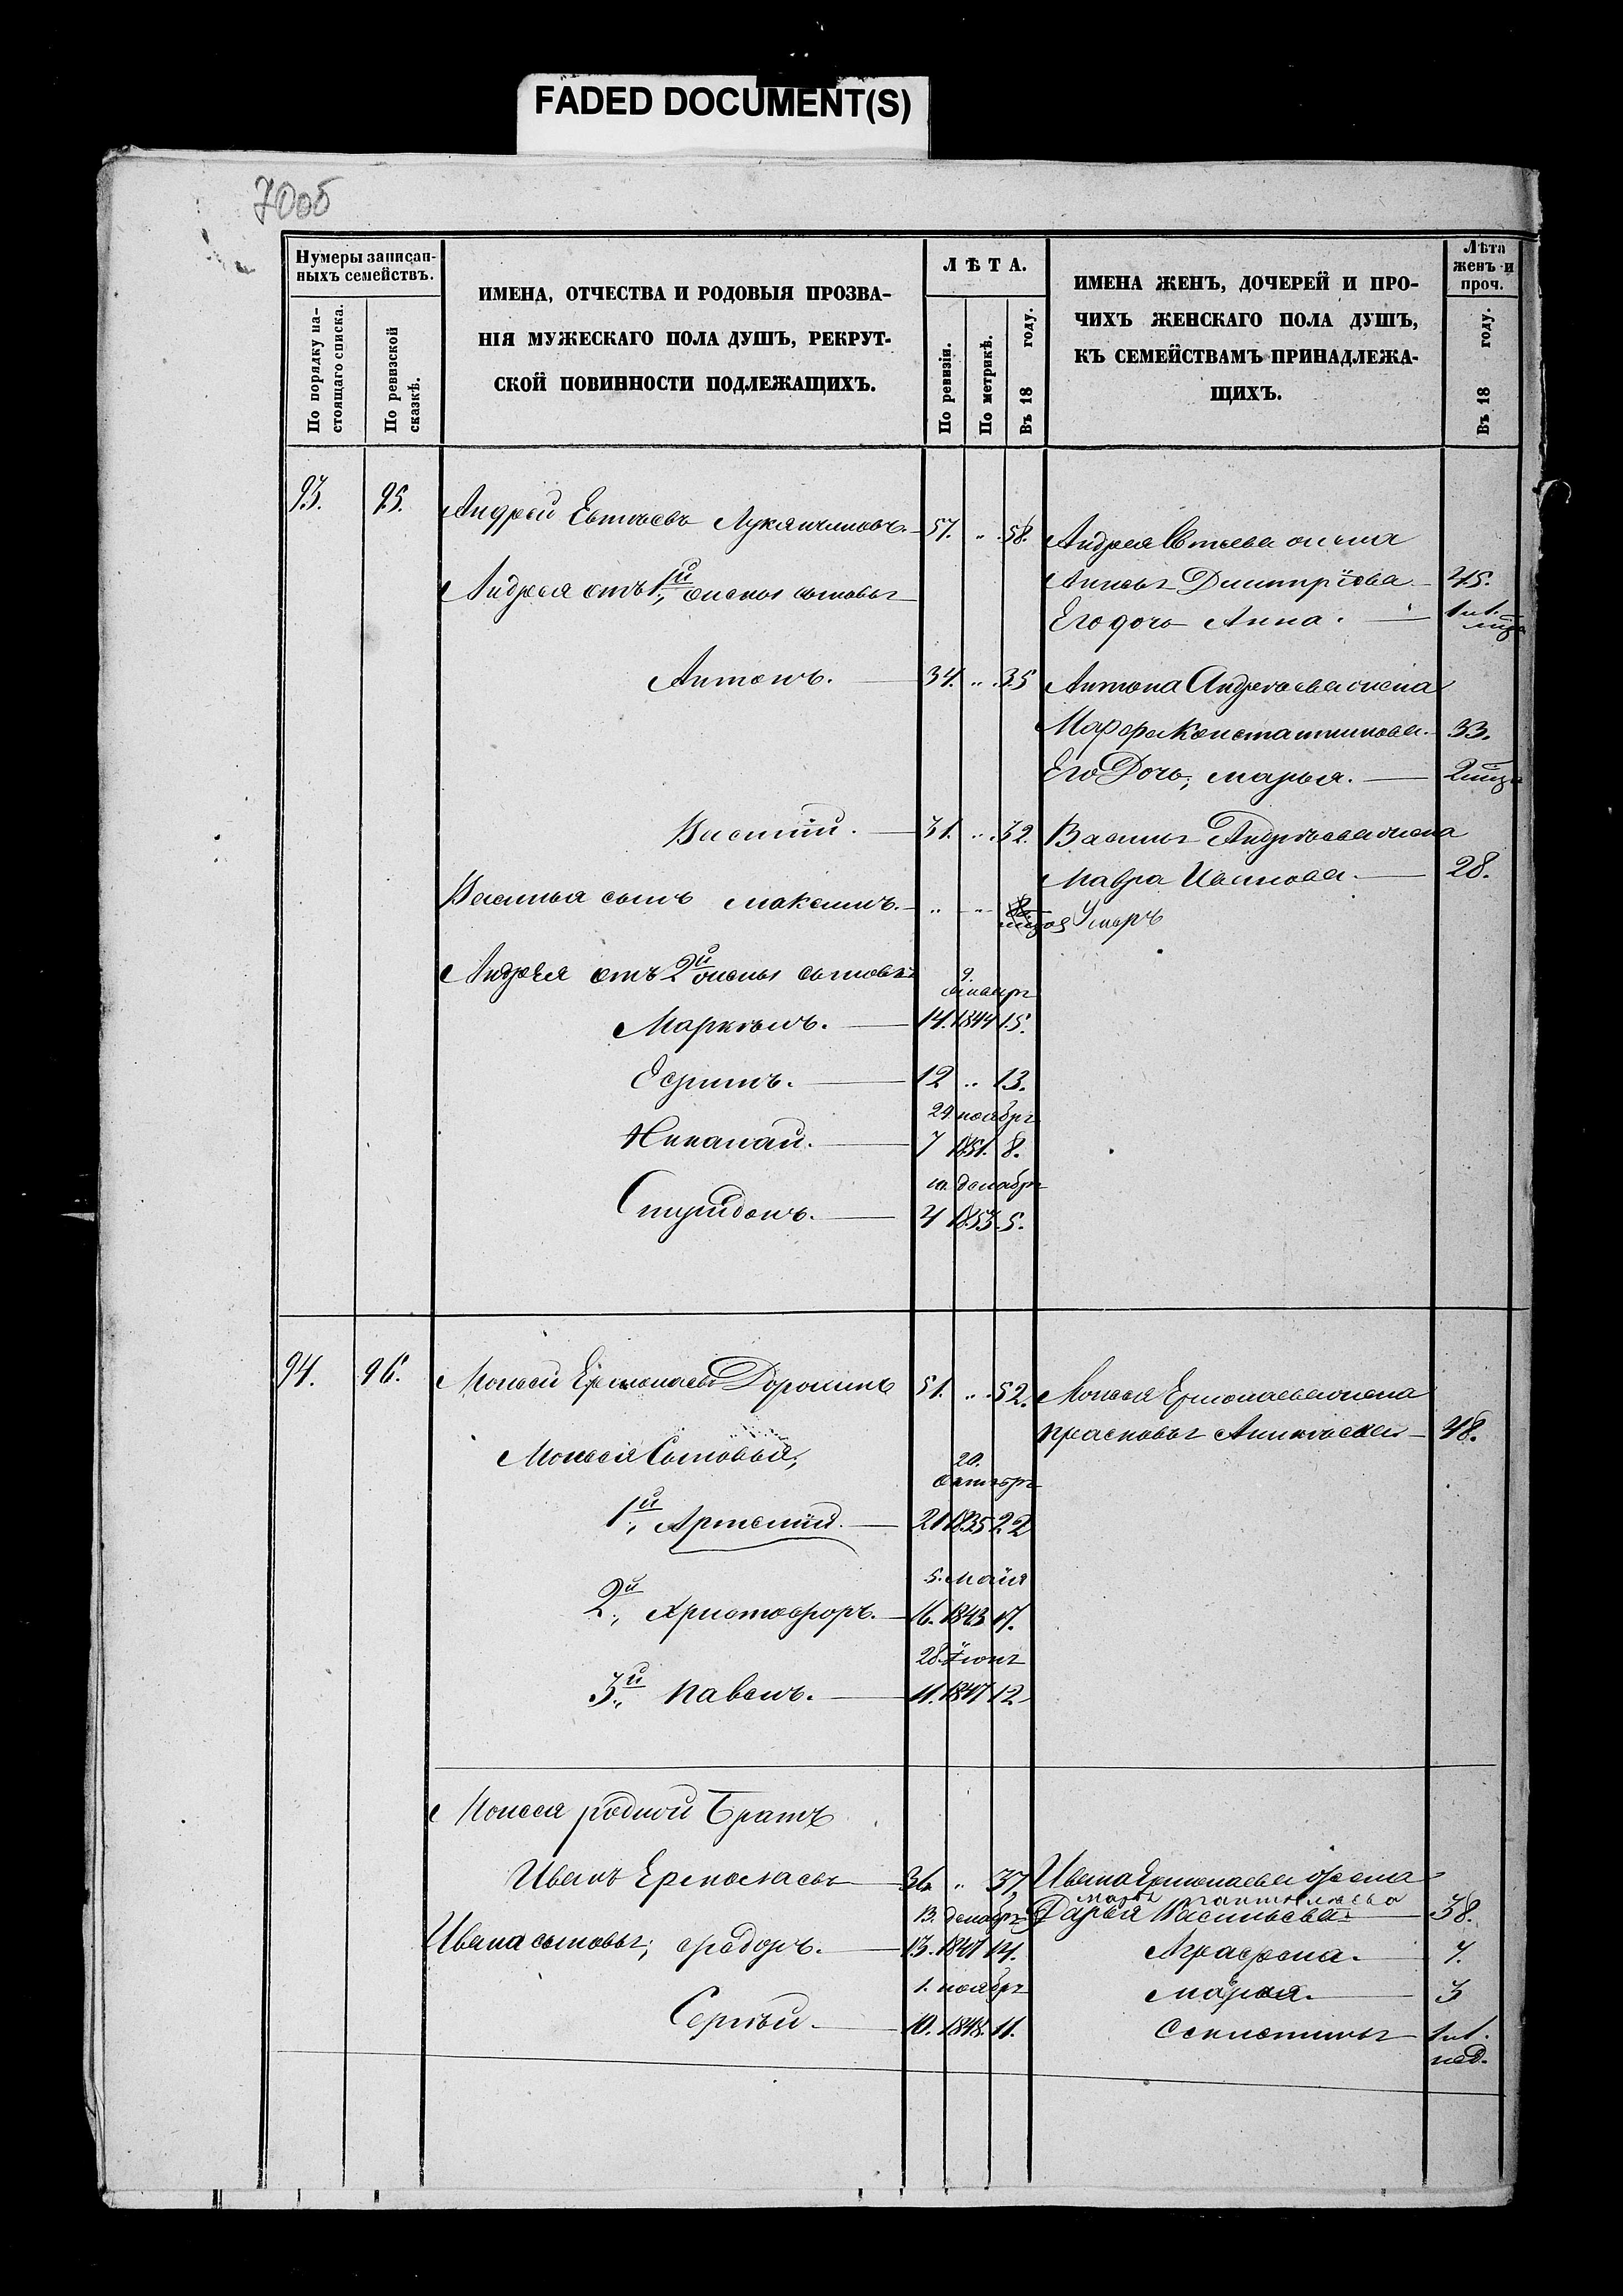 FADED DOCUMENT(S)
70об
Нумеры записан-
ныхъ семействъ.
По порядку на-
стоящаго списка.
По ревизской
сказкѣ.
ИМЕНА, ОТЧЕСТВА И РОДОВЫЯ ПРОЗВА-
НІЯ МУЖЕСКАГО ПОЛА ДУШЪ, РЕКРУТ-
СКОЙ ПОВИННОСТИ ПОДЛЕЖАЩИХЪ.
ЛѢТА.
По ревизіи.
По метрикѣ.
Въ 18 году.
ИМЕНА ЖЕНЪ, ДОЧЕРЕЙ И ПРО-
ЧИХЪ ЖЕНСКАГО ПОЛА ДУШЪ,
КЪ СЕМЕЙСТВАМЪ ПРИНАДЛЕЖА-
ЩИХЪ.
Лѣта
женъ и
проч.
Въ 18 году.
93. 95. Андрей Евтѣевъ 57. „ 58.
Андрея Евтеева жена
Андрея отъ 1й жены сыновья
Анисья Димитрiева 45.
Его дочь Анна.
Антонъ. 34. „ 35 Антона Андреева жена
Марфа Константинова. 33.
Его Дочь, марья.
Василiй. 31. „ 32. Василья Андреева жена
Мавра Иванова. 28.
Василья сынъ максимъ. „ „ Умеръ
Андрея отъ 2й жены сыновья 9.
Маркелъ. 14. 1844 15.
Ефимъ. 12 „ 13.
29 ноября
Николай. 7 1851. 8.
10. декабря
Спиридонъ. 4 1853 5.
94. 96. Моисей Ермолаевъ Доронинъ 51. „ 52. Моисея Ермолаева жена
прасковья 48.
Моисея Сыновья; 20.
октября
1й Артемiй. 21 1835 22
5. маiя
2й Христофоръ. 16. 1843 17.
28. Iюня
3й павелъ. 11. 1847 12
Моисея родной Братъ
Иванъ Ермолаевъ 36 „ 37 Ивана Ермолаева жена
13. декабря Дарья Васильева 38.
Ивана сыновья; федоръ. 13. 1847 14. Аграфена. 7.
1. ноября марья. 3
Сергѣй. 10. 1848. 11. Секлетинья 1 и 1.
нед.